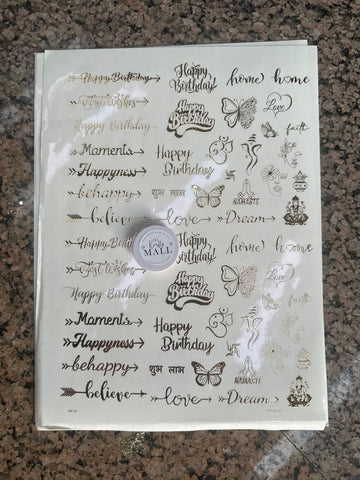 Happy Birthday
Happy
Birthday!
home
home
Best Wishes
Happy
Birthday
Love
Happy Birthday
faith
Moments
Happy
Birthday
Happyness
behappy
शुभ लाभ
NAMASTE
believe
love
Dream
Happy
Birthday!
home
home
Best Wishes
MALL
Happy
Birthday
Love
Happy Birthday
faith
Moments
Happy
Birthday
Happyness
behappy
शुभ लाभ
NAMASTE
believe
love
Dream